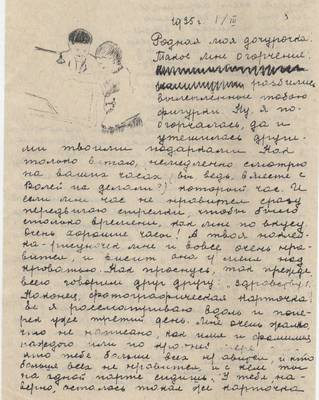 1935 г. 1/III
Родная моя дочурочка.
Такое мне огорчение:
разбились
вылепленные тобою
фигурки. Ну я по-
огорчалась, да и
утешилась други-
ми твоими подарками. Как
только встаю, немедленно смотрю
на ваших часах (вы ведь вместе с
Валей их делали?) который час. И
если мне час не нравится сразу
передвигаю стрелки, чтобы было
столько времени, как мне по вкусу
очень хорошие часы. А твоя палоч-
ка-рисуночек мне и вовсе очень нра-
вится, и висит она у меня над
кроватью. Как проснусь, так прежде
всего говорим друг другу: здравствуй.
Наконец, фотографическая карточка!
Ее я рассматриваю вдоль и попе-
рек уже третий день. Мне очень жалко
что не написано, как имя и фамилия
каждого или по крайней мере
кто тебе больше всех нравится, и кто
больше всех не нравится, и с кем ты
на одной парте сидишь. У тебя на-
верно, осталась такая же карточка